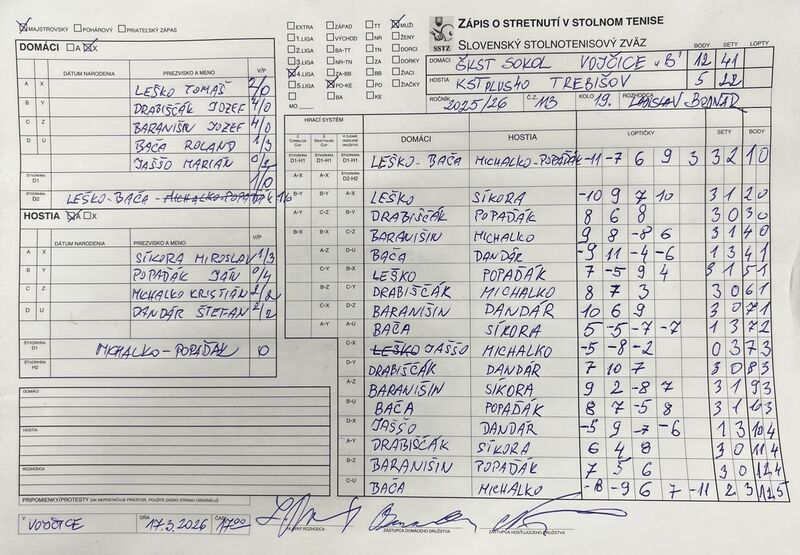 ☒ MAJSTROVSKÝ ☐ POHÁROVÝ ☐ PRIATEĽSKÝ ZÁPAS
DOMÁCI ☐ A ☒ X
DÁTUM NARODENIA PRIEZVISKO A MENO V/P
A X LEŠKO TOMÁŠ 2/0
B Y DRABIŠČÁK JOZEF 4/0
C Z BARANIŠIN JOZEF 4/0
BAČA ROLAND 1/3
JAŠŠO MARIAN 0/2
ŠTVORHRA D1 1/0
D2 LEŠKO-BAČA - MICHALKO-POPAĎÁK 1/0
HOSTIA ☒ A ☐ X
DÁTUM NARODENIA PRIEZVISKO A MENO V/P
A X SÍKORA MIROSLAV 1/3
B Y POPAĎÁK JÁN 0/4
C Z MICHALKO KRISTIÁN 2/2
D U DANDÁR ŠTEFAN 2/2
ŠTVORHRA D1 MICHALKO-POPAĎÁK 0
ŠTVORHRA H2
DOMÁCI
HOSTIA
ROZHODCA
PRIPOMIENKY/PROTESTY (AK NEPOSTAČUJE PRIESTOR, POUŽITE ZADNÚ STRANU ORIGINÁLU)
☐ EXTRA ☐ ZÁPAD ☐ TT ☒ MUŽI
☐ 1.LIGA ☐ VÝCHOD ☐ NR ☐ ŽENY
☐ 2.LIGA ☐ BA-TT ☐ TN ☐ DORCI
☐ 3.LIGA ☐ TN-NR ☐ ZA ☐ DORKY
☒ 4.LIGA ☐ ZA-BB ☐ BB ☐ ŽIACI
☐ 5.LIGA ☒ PO-KE ☐ PO ☐ ŽIAČKY
MO ☐ BA ☐ KE
SSTZ
ZÁPIS O STRETNUTÍ V STOLNOM TENISE
SLOVENSKÝ STOLNOTENISOVÝ ZVÄZ
BODY SETY LOPTY
DOMÁCI ŠKST SOKOL VOJČICE "B" 12 41
HOSTIA KST PLUS40 TREBIŠOV 5 22
ROČNÍK 2025/26 Č.Z. 113 KOLO 19. ROZHODCA LADISLAV BODNÁR
HRACÍ SYSTÉM DOMÁCI HOSTIA LOPTIČKY SETY BODY
ŠTVORHRA D1-H1 ŠTVORHRA D1-H1 LEŠKO-BAČA MICHALKO-POPAĎÁK -11 -7 6 9 3 3 2 1 0
A-X ŠTVORHRA D2-H2
B-Y A-X LEŠKO SÍKORA -10 9 7 10 3 1 2 0
A-Y C-Z B-Y DRABIŠČÁK POPAĎÁK 8 6 8 3 0 3 0
B-X B-X C-Z BARANIŠIN MICHALKO 9 8 -8 6 3 1 4 0
A-Z D-U BAČA DANDÁR -9 11 -4 -6 1 3 4 1
C-Y A-Y LEŠKO POPAĎÁK 7 -5 9 4 3 1 5 1
B-Z DRABIŠČÁK MICHALKO 8 7 3 3 0 6 1
C-X D-Z BARANIŠIN DANDÁR 10 6 9 3 0 7 1
A-Y A-U BAČA SÍKORA 5 -5 -7 -7 1 3 7 2
C-X LEŠKO JAŠŠO MICHALKO -5 -8 -2 0 3 7 3
D-Y DRABIŠČÁK DANDÁR 7 10 7 3 0 8 3
A-Z BARANIŠIN SÍKORA 9 2 -8 7 3 1 9 3
B-U BAČA POPAĎÁK 8 7 -5 8 3 1 10 3
D-X JAŠŠO DANDÁR -5 9 -7 -6 1 3 10 4
A-Y DRABIŠČÁK SÍKORA 6 4 8 3 0 11 4
B-Z BARANIŠIN POPAĎÁK 7 5 6 3 0 12 4
C-U BAČA MICHALKO -8 -9 6 7 -11 2 3 12 5
V VOJČICE DŇA 17.3.2026 ČAS 17:00
HLAVNÝ ROZHODCA ZÁSTUPCA DOMÁCEHO DRUŽSTVA ZÁSTUPCA HOSŤUJÚCEHO DRUŽSTVA